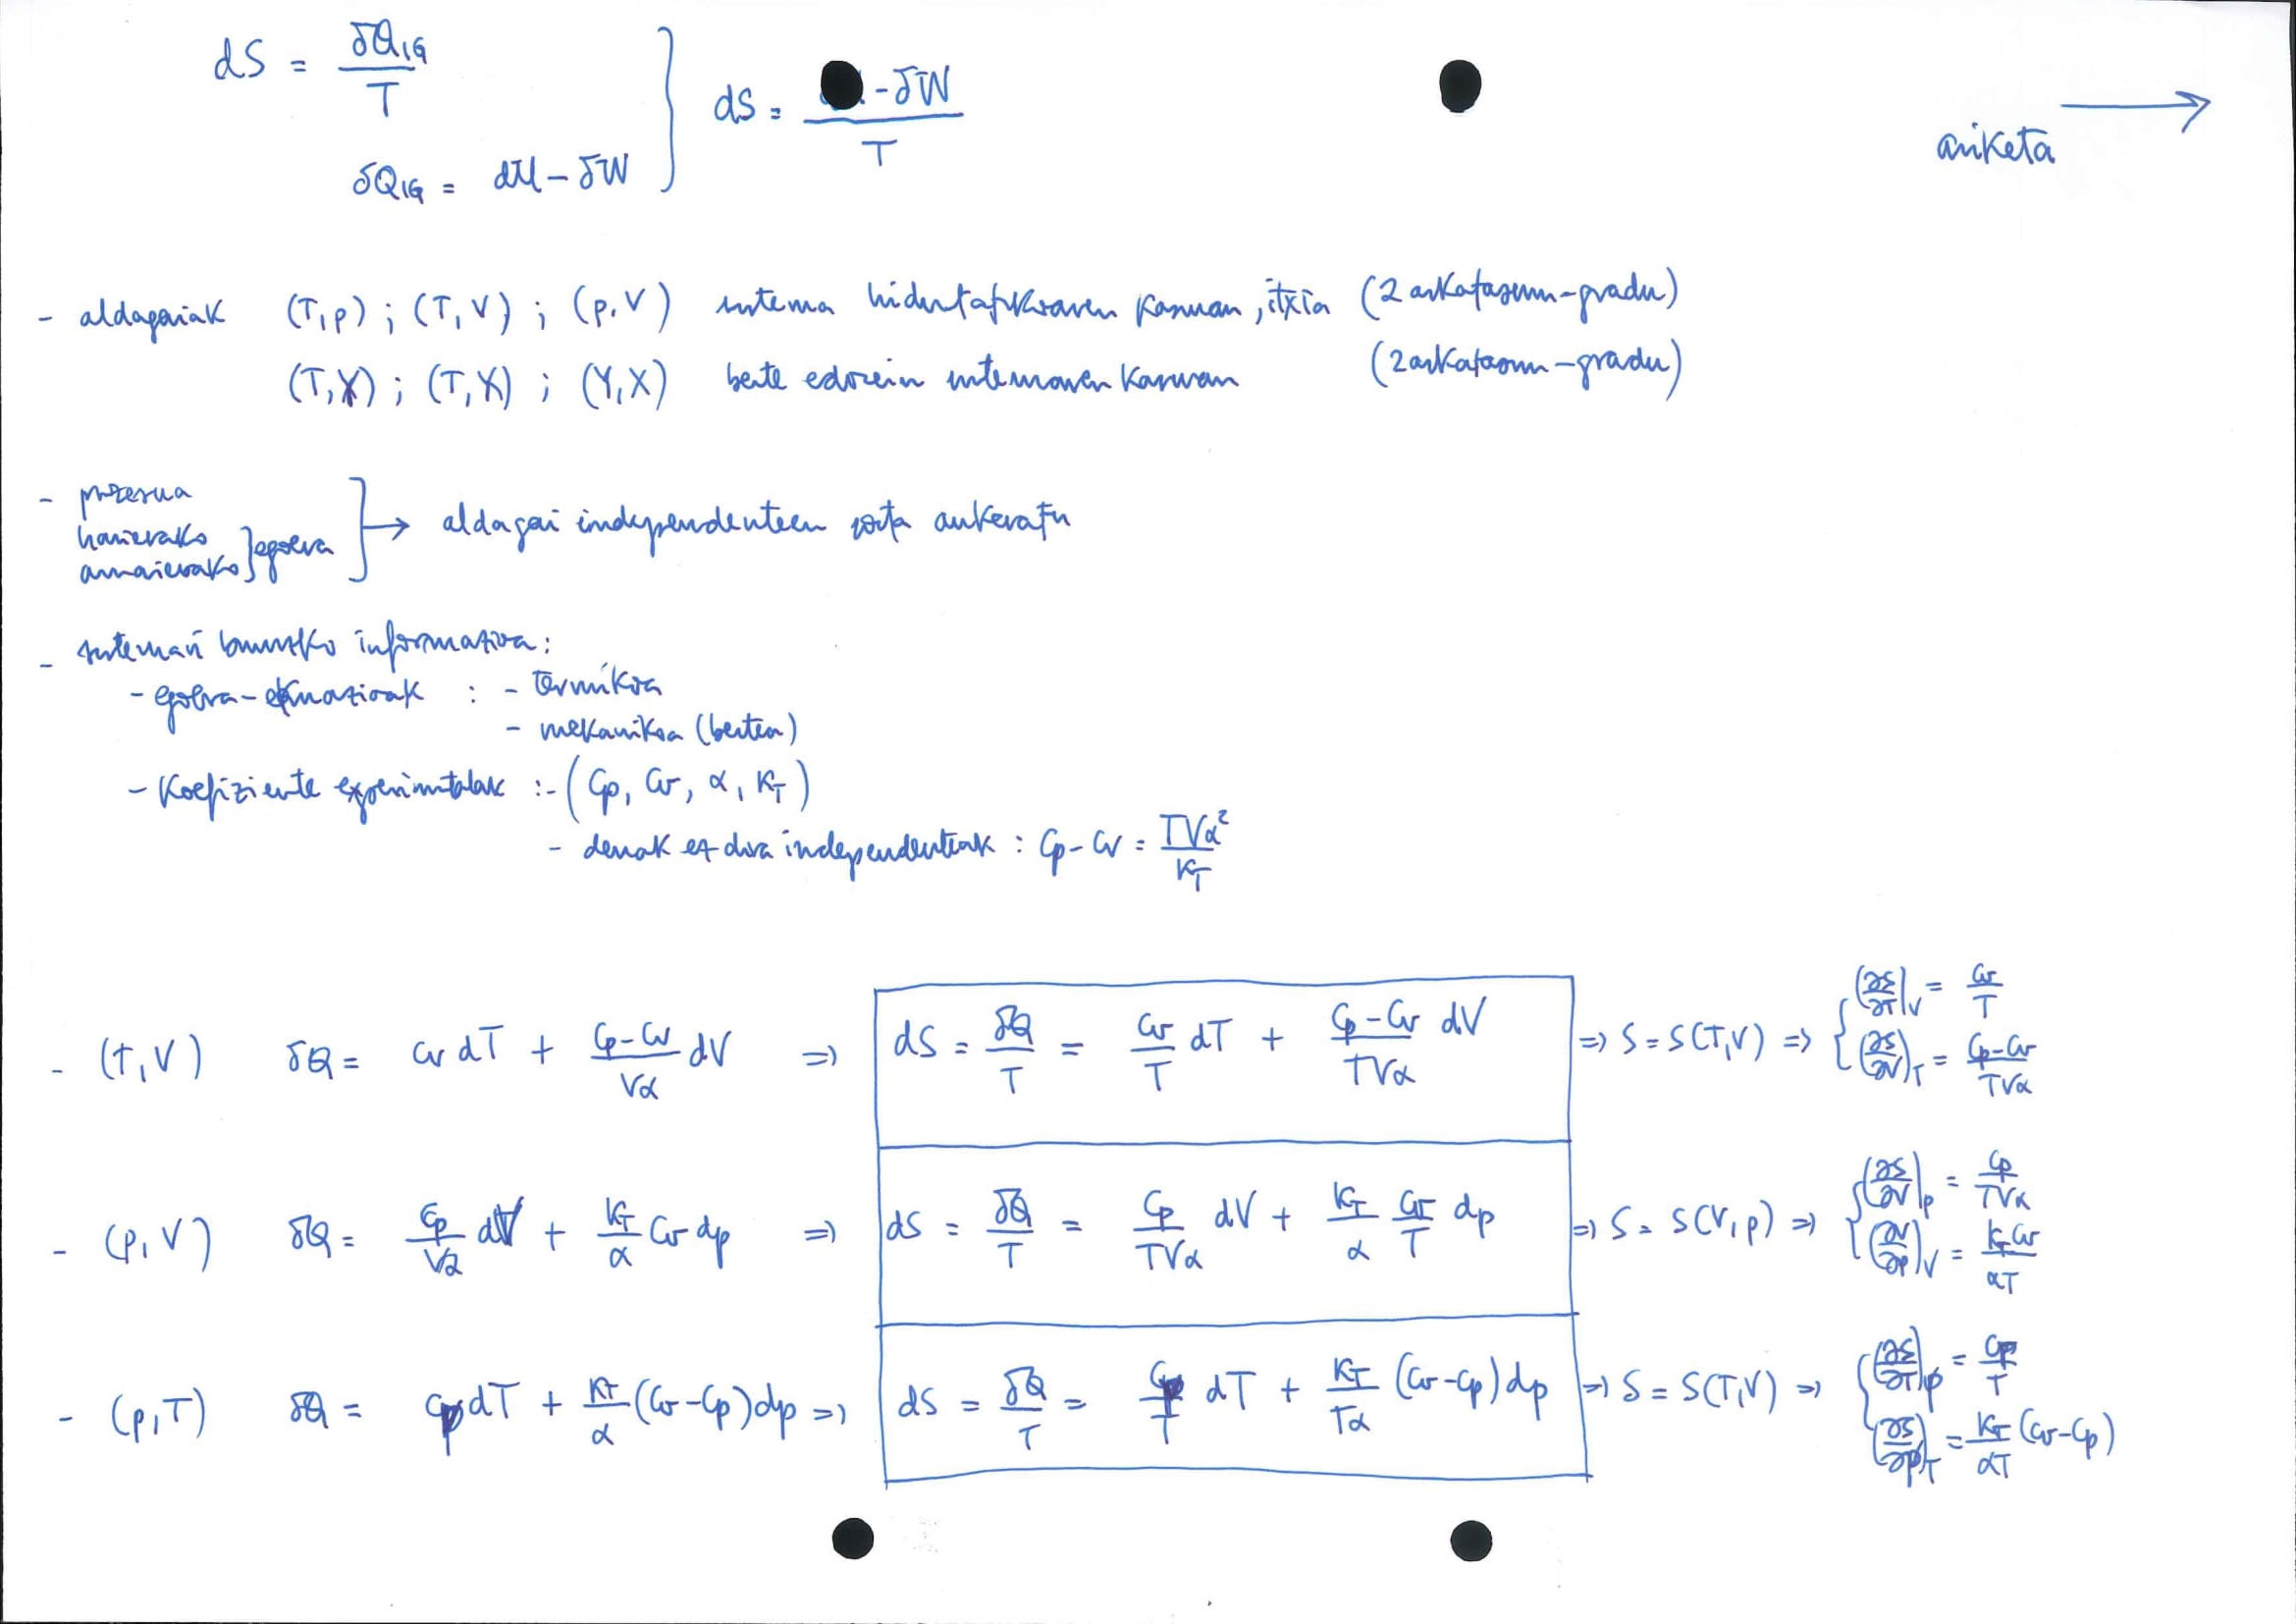 dS = δQ_IG / T } dS = -δW / T
ariketa →
δQ_IG = dU - δW
- aldagaiak (T,p) ; (T,V) ; (p,V) sistema hidrostatikoaren kasuan, itxia (2 askatasun-gradu)
(T,Y) ; (T,X) ; (Y,X) beste edozein sistemaren kasuan (2 askatasun-gradu)
- prozesua
hasierako
amaierako ] egoera ] → aldagai independenteen sorta aukeratu
- sistemari buruzko informazioa:
- egoera-ekuazioak : - termikoa
- mekanikoa (bestea)
- Koefiziente experimentalak :- (Cp, Cv, α, K_T)
- denak ez dira independenteak : Cp - Cv = TVα² / K_T
- (T,V) δQ = Cv dT + (Cp-Cv)/(Vα) dV ⇒ dS = δQ/T = Cv/T dT + (Cp-Cv)/(TVα) dV ⇒ S = S(T,V) ⇒ { (∂S/∂T)_V = Cv/T
(∂S/∂V)_T = (Cp-Cv)/(TVα)
- (p,V) δQ = Cp/(Vα) dV + K_T/α Cv dp ⇒ dS = δQ/T = Cp/(TVα) dV + K_T/α Cv/T dp ⇒ S = S(V,p) ⇒ { (∂S/∂V)_p = Cp/(TVα)
(∂V/∂p)_V = K_T Cv/(αT)
- (p,T) δQ = Cp dT + K_T/α (Cv-Cp) dp ⇒ dS = δQ/T = Cp/T dT + K_T/(Tα) (Cv-Cp) dp ⇒ S = S(T,V) ⇒ { (∂S/∂T)_p = Cp/T
(∂S/∂p)_T = K_T/(αT) (Cv-Cp)